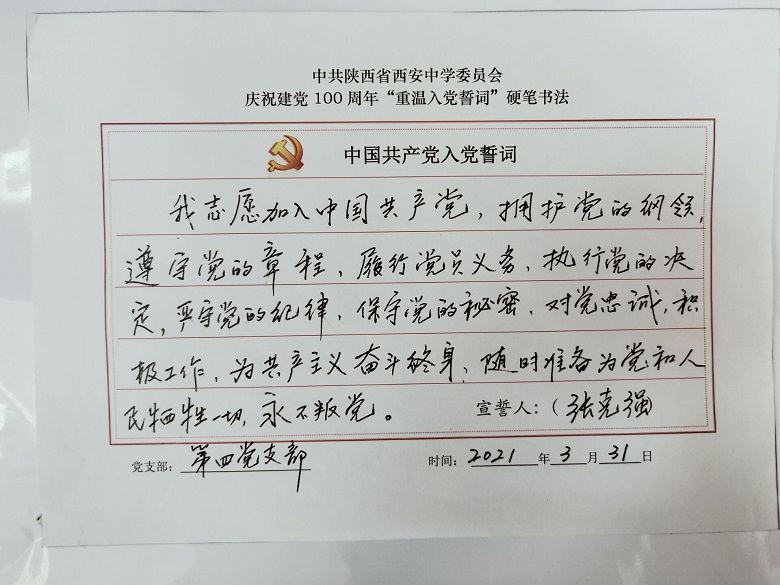 中共陕西省西安中学委员会
庆祝建党 100 周年“重温入党誓词”硬笔书法
中国共产党入党誓词
我志愿加入中国共产党，拥护党的纲领，
遵守党的章程、履行党员义务、执行党的决
定，严守党的纪律、保守党的秘密、对党忠诚，积
极工作，为共产主义奋斗终身、随时准备为党和人
民牺牲一切，永不叛党。 宣誓人：（张克强）
党支部：第四党支部 时间：2021 年 3 月 31 日